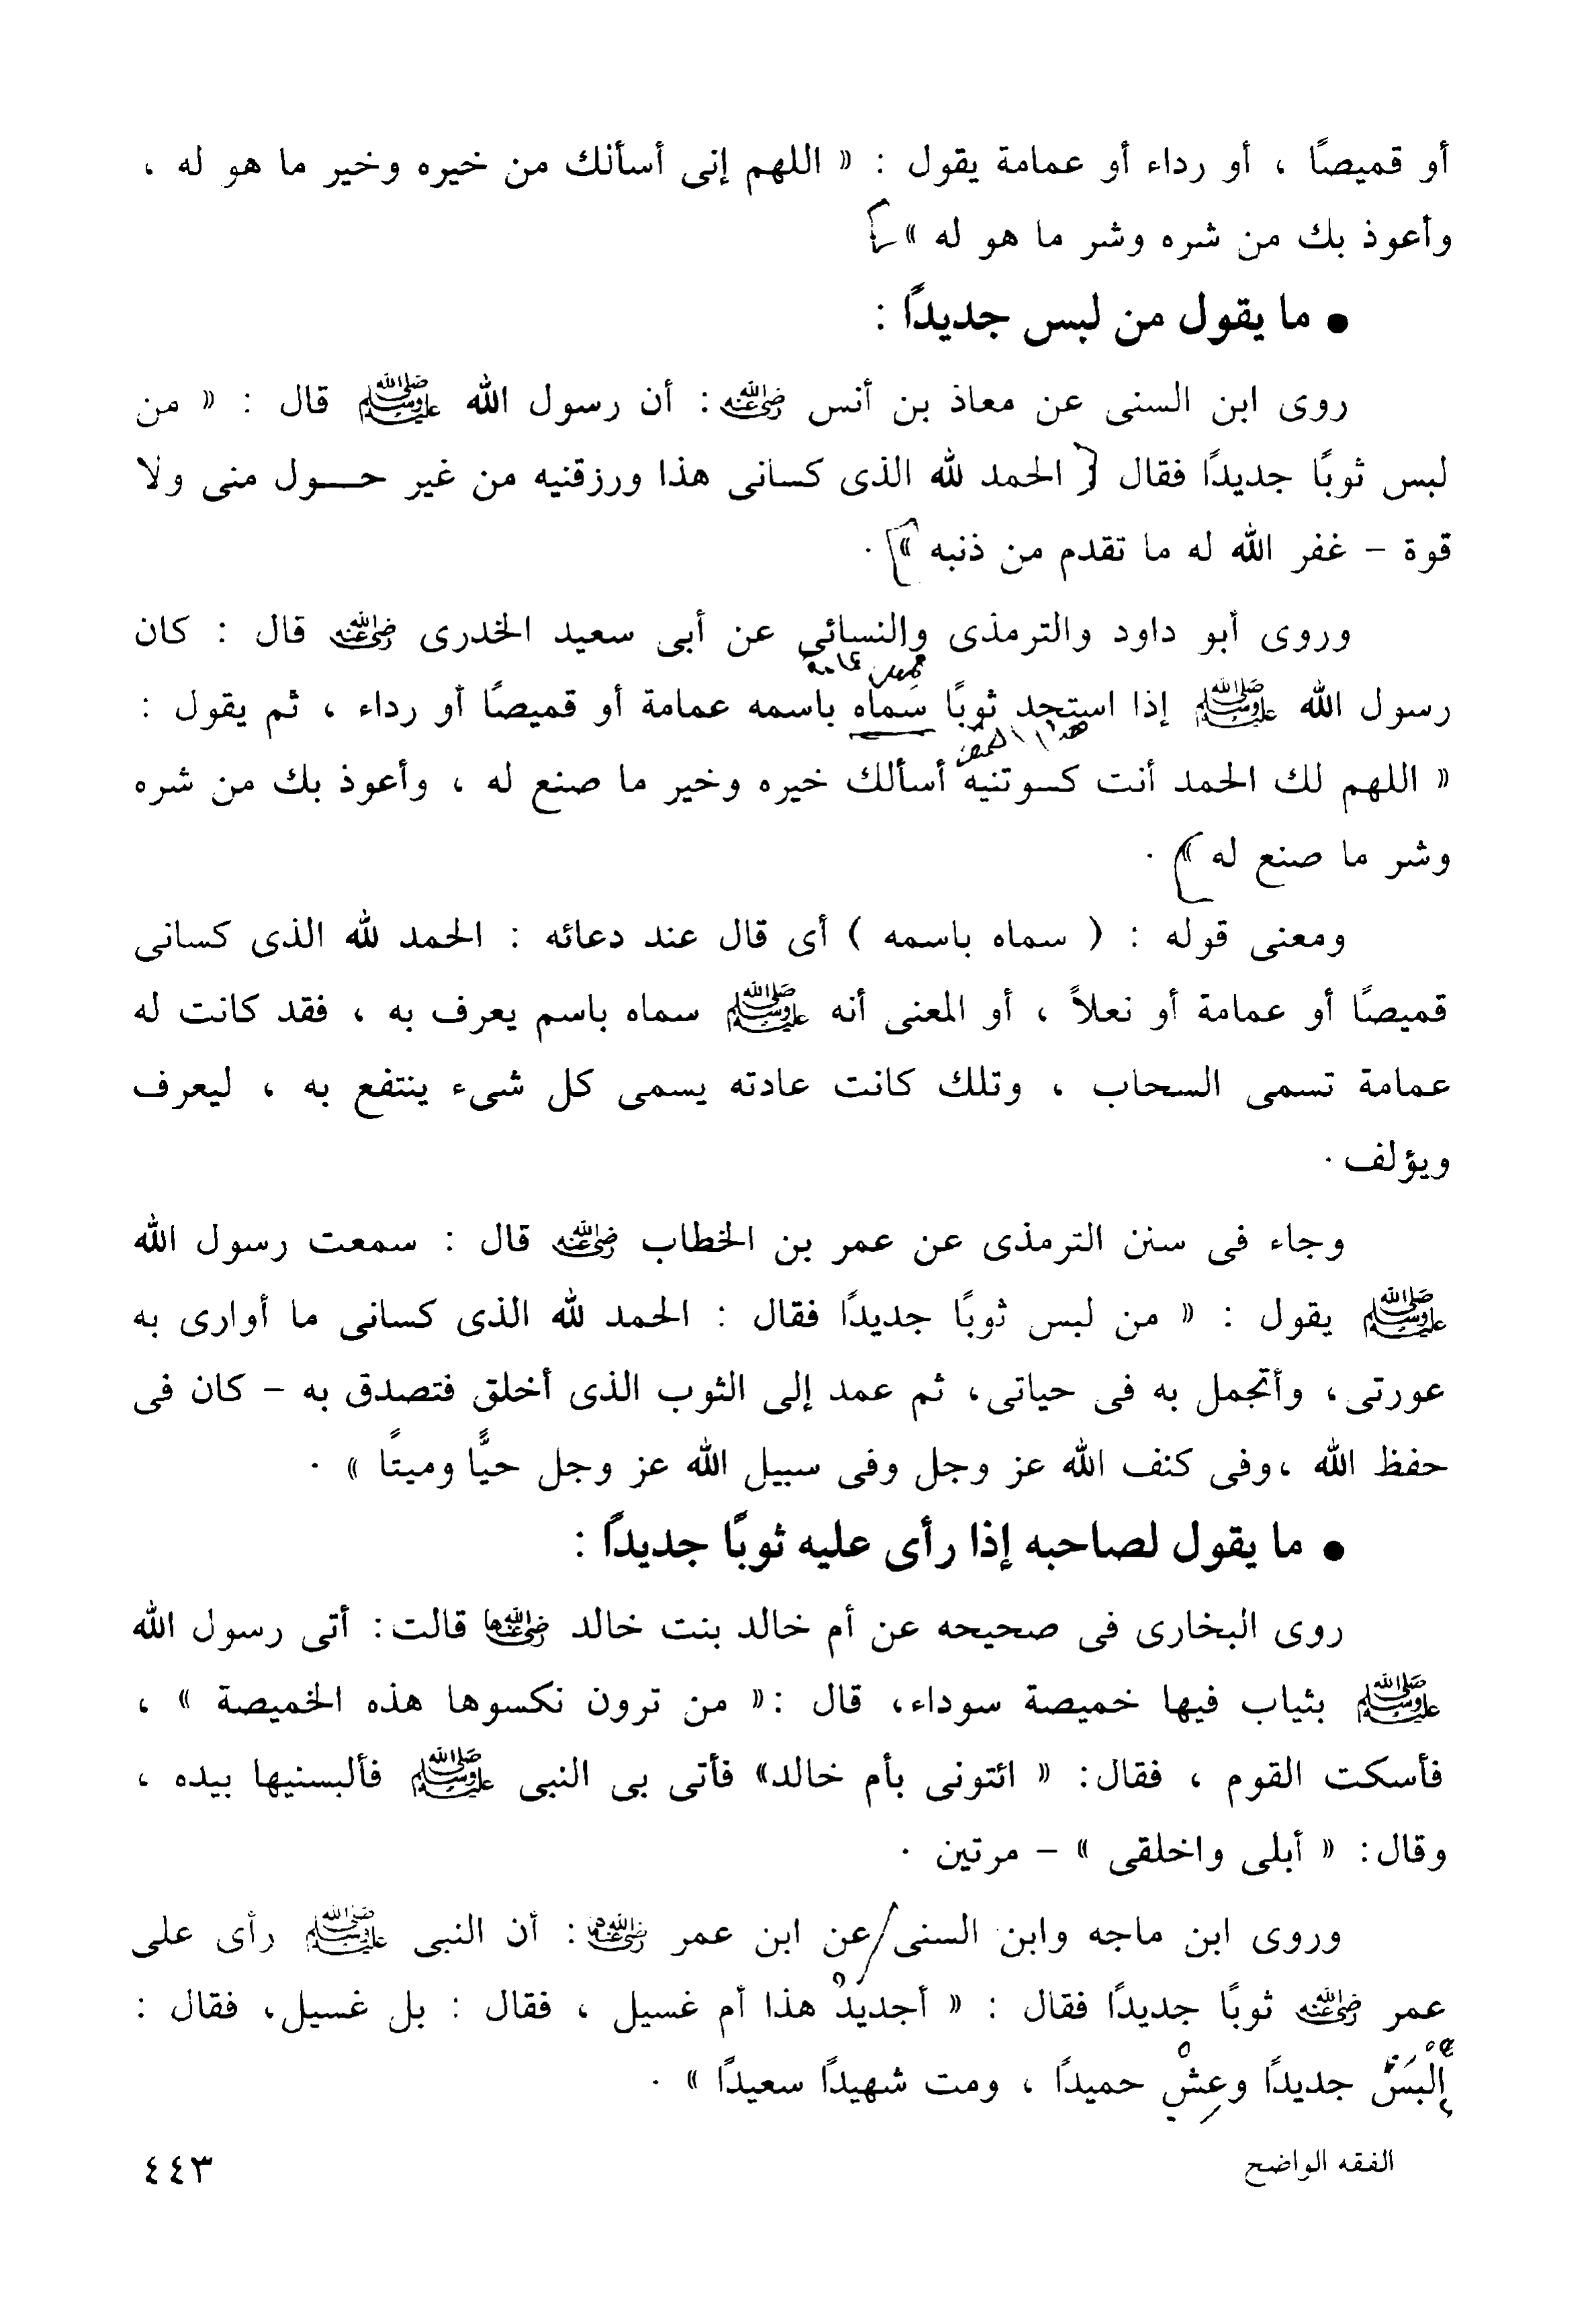 أو قميصًا ، أو رداء أو عمامة يقول : « اللهم إنى أسأنك من خيره وخير ما هو له ،
وأعوذ بك من شره وشر ما هو له »
● ما يقول من لبس جديدًا :
روى ابن السنى عن معاذ بن أنس رضي الله عنه : أن رسول الله ﷺ قال : « من
لبس ثوبًا جديدًا فقال { الحمد لله الذى كسانى هذا ورزقنيه من غير حـــول منى ولا
قوة – غفر الله له ما تقدم من ذنبه » .
وروى أبو داود والترمذى والنسائى عن أبى سعيد الخدرى رضي الله عنه قال : كان
رسول الله ﷺ إذا استجد ثوبًا سماه باسمه عمامة أو قميصًا أو رداء ، ثم يقول :
« اللهم لك الحمد أنت كسوتنيه أسألك خيره وخير ما صنع له ، وأعوذ بك من شره
وشر ما صنع له » .
ومعنى قوله : ( سماه باسمه ) أى قال عند دعائه : الحمد لله الذى كسانى
قميصًا أو عمامة أو نعلاً ، أو المعنى أنه ﷺ سماه باسم يعرف به ، فقد كانت له
عمامة تسمى السحاب ، وتلك كانت عادته يسمى كل شىء ينتفع به ، ليعرف
ويؤلف .
وجاء فى سنن الترمذى عن عمر بن الخطاب رضي الله عنه قال : سمعت رسول الله
ﷺ يقول : « من لبس ثوبًا جديدًا فقال : الحمد لله الذى كسانى ما أوارى به
عورتى ، وأتجمل به فى حياتى ، ثم عمد إلى الثوب الذى أخلق فتصدق به – كان فى
حفظ الله ،وفى كنف الله عز وجل وفى سبيل الله عز وجل حيًّا وميتًا » .
● ما يقول لصاحبه إذا رأى عليه ثوبًا جديدًا :
روى البخارى فى صحيحه عن أم خالد بنت خالد رضي الله عنها قالت : أتى رسول الله
ﷺ بثياب فيها خميصة سوداء ، قال :« من ترون نكسوها هذه الخميصة » ،
فأسكت القوم ، فقال : « ائتونى بأم خالد» فأتى بى النبى ﷺ فألبسنيها بيده ،
وقال : « أبلى واخلقى » – مرتين .
وروى ابن ماجه وابن السنى / عن ابن عمر رضي الله عنهما : أن النبى ﷺ رأى على
عمر رضي الله عنه ثوبًا جديدًا فقال : « أجديدْ هذا أم غسيل ، فقال : بل غسيل ، فقال :
إلْبَسْ جديدًا وعِشْ حميدًا ، ومت شهيدًا سعيدًا » .
الفقه الواضح
٤٤٣